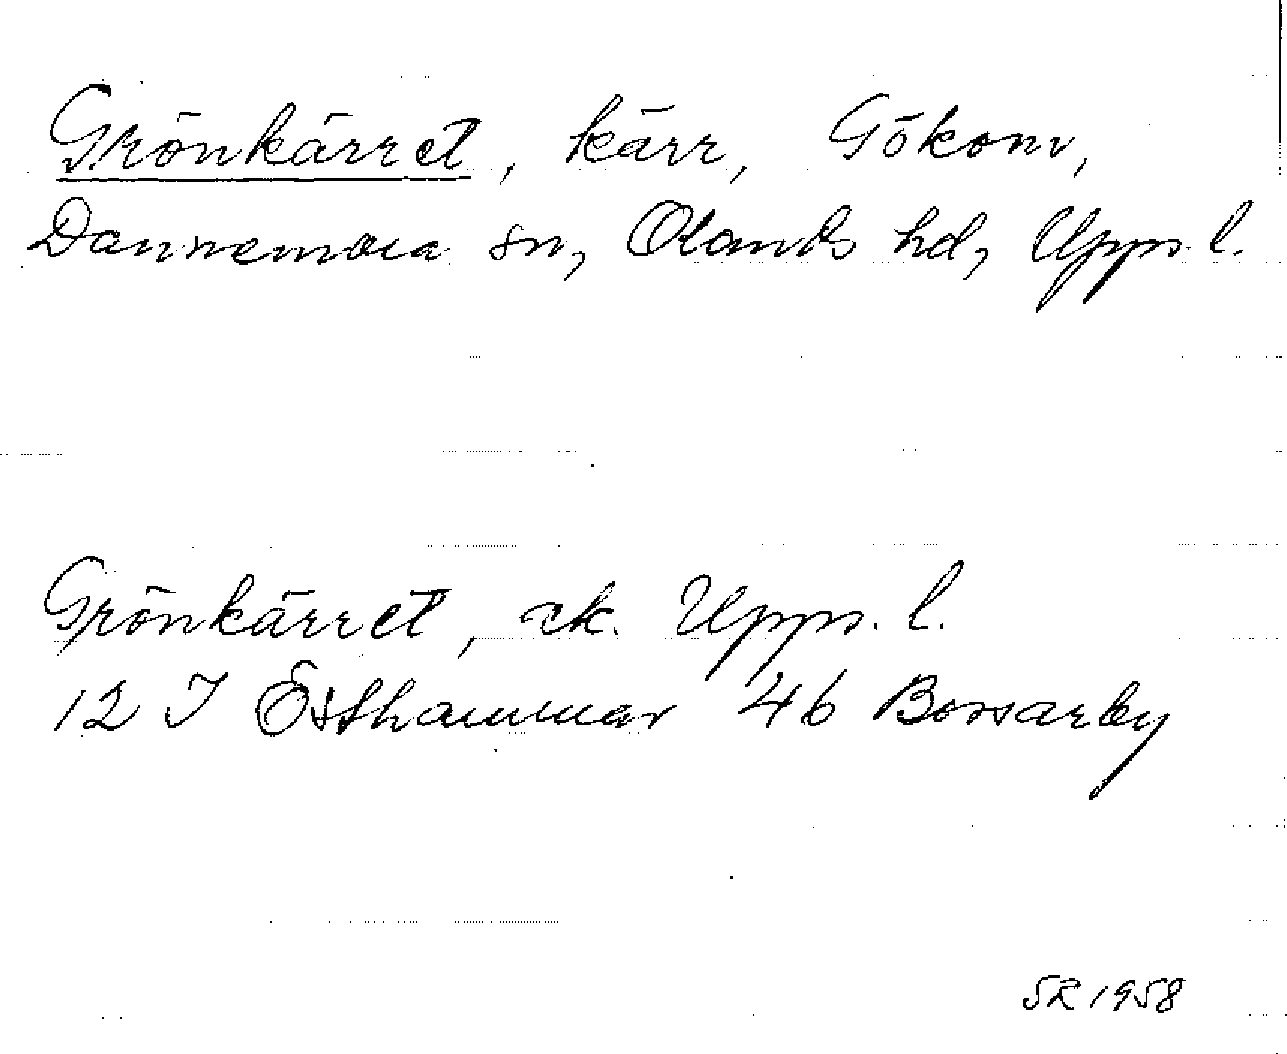 Grönkärret, kärr, Gökom,
Dannemora sn, Olands hd, Upps. l.
Grönkärret, ek. Upps. l.
12 I Östhammar 4b Bossarby
SR 1958